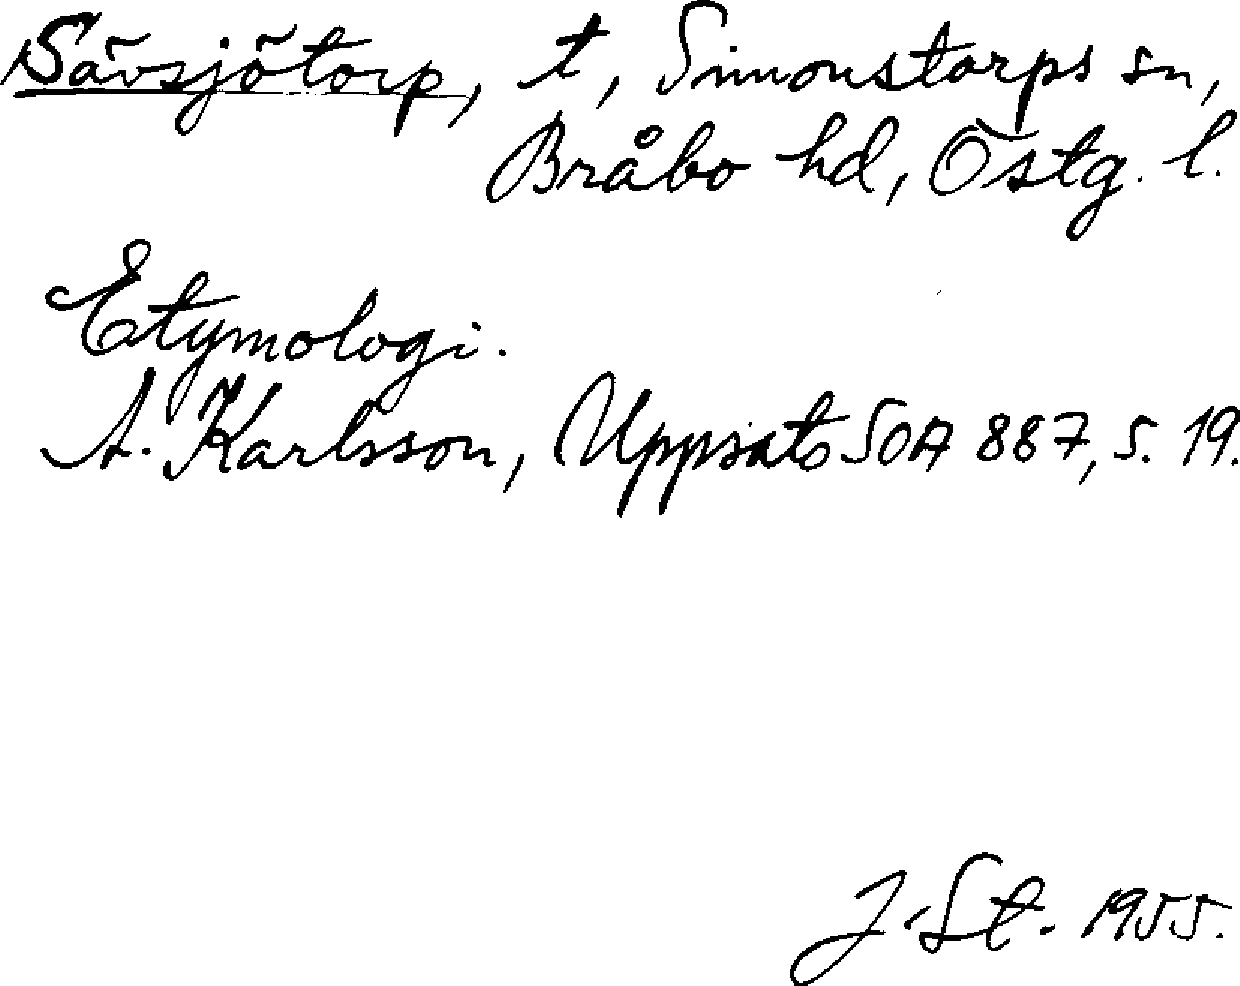 Sävsjötorp, t, Simonstorps sn,
Bråbo hd, Östg. l.
Etymologi.
A. Karlsson, Uppsats SOA 887, s. 19.
J. St. 1955.